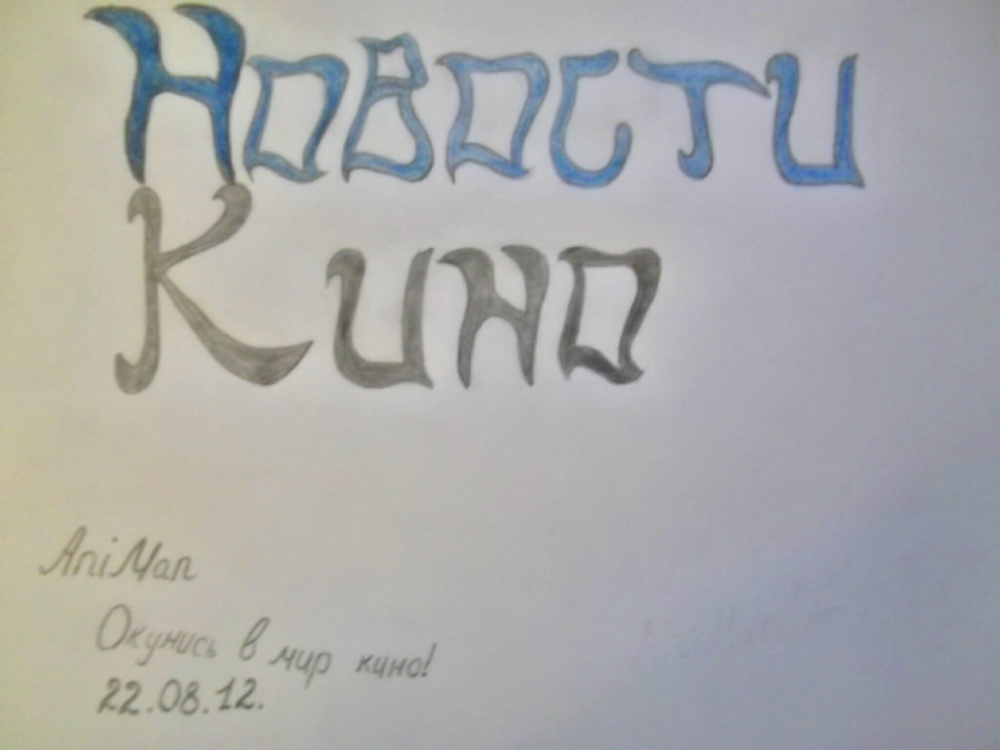 Новости
Кино
AniMan
Окунись в мир кино!
22.08.12.